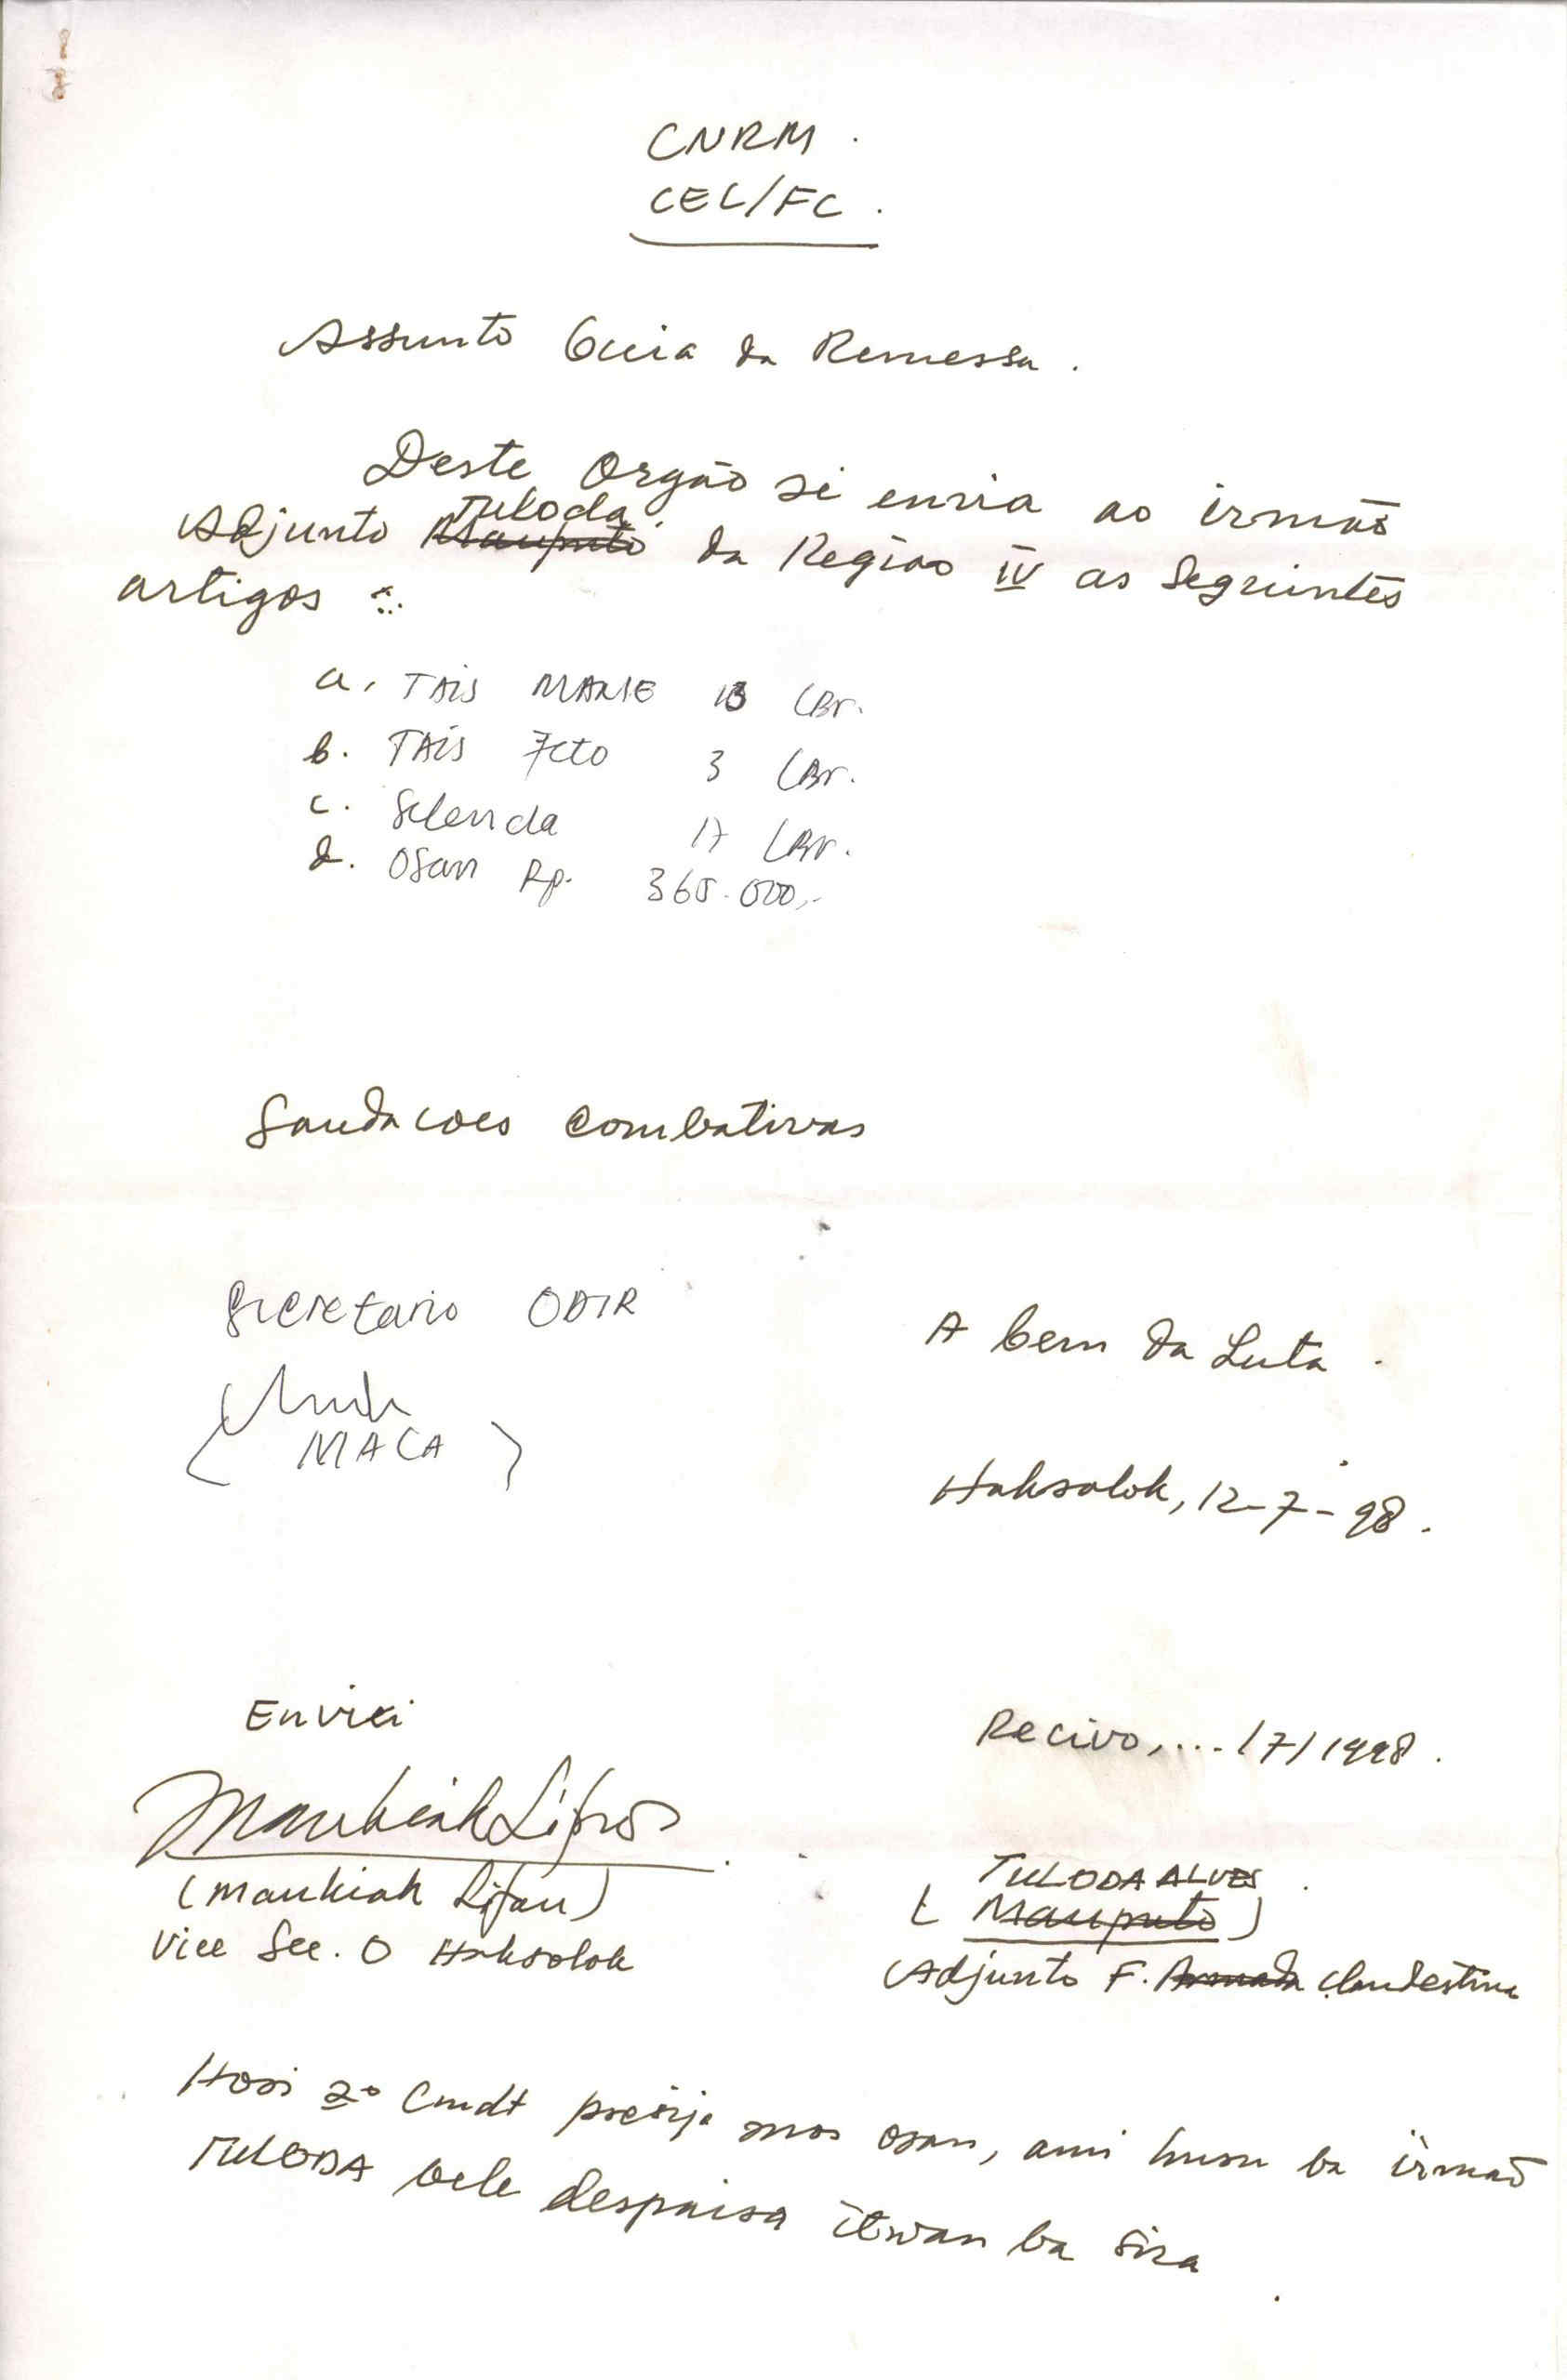 CNRM.
CEL/FC.
Assunto Guia da Remessa.
Deste Orgão si envia ao irmão
Adjunto Tuloda Mauputo da Região IV as Seguintes
artigos :
a. TAIS MANE 13 LBR.
b. TAIS Feto 3 LBr.
c. Selenda 17 LBr.
d. OSan Rp. 365.000,-
Saudacoes Combativas
Secretario ODIR
MACA
A bem da Luta.
Haksolok, 12-7-98.
Enviei
Recivo,.... /7/1998.
Maukiak Lifau
(Maukiak Lifau)
Vice Sec. O Haksolok
TULODA ALVES.
(Mauputo)
Adjunto F. Armada Clandestina
Hosi 2º Cmdt presija mos osan, ami husu ba irmão
TULODA bele despaisa itwan ba sira.